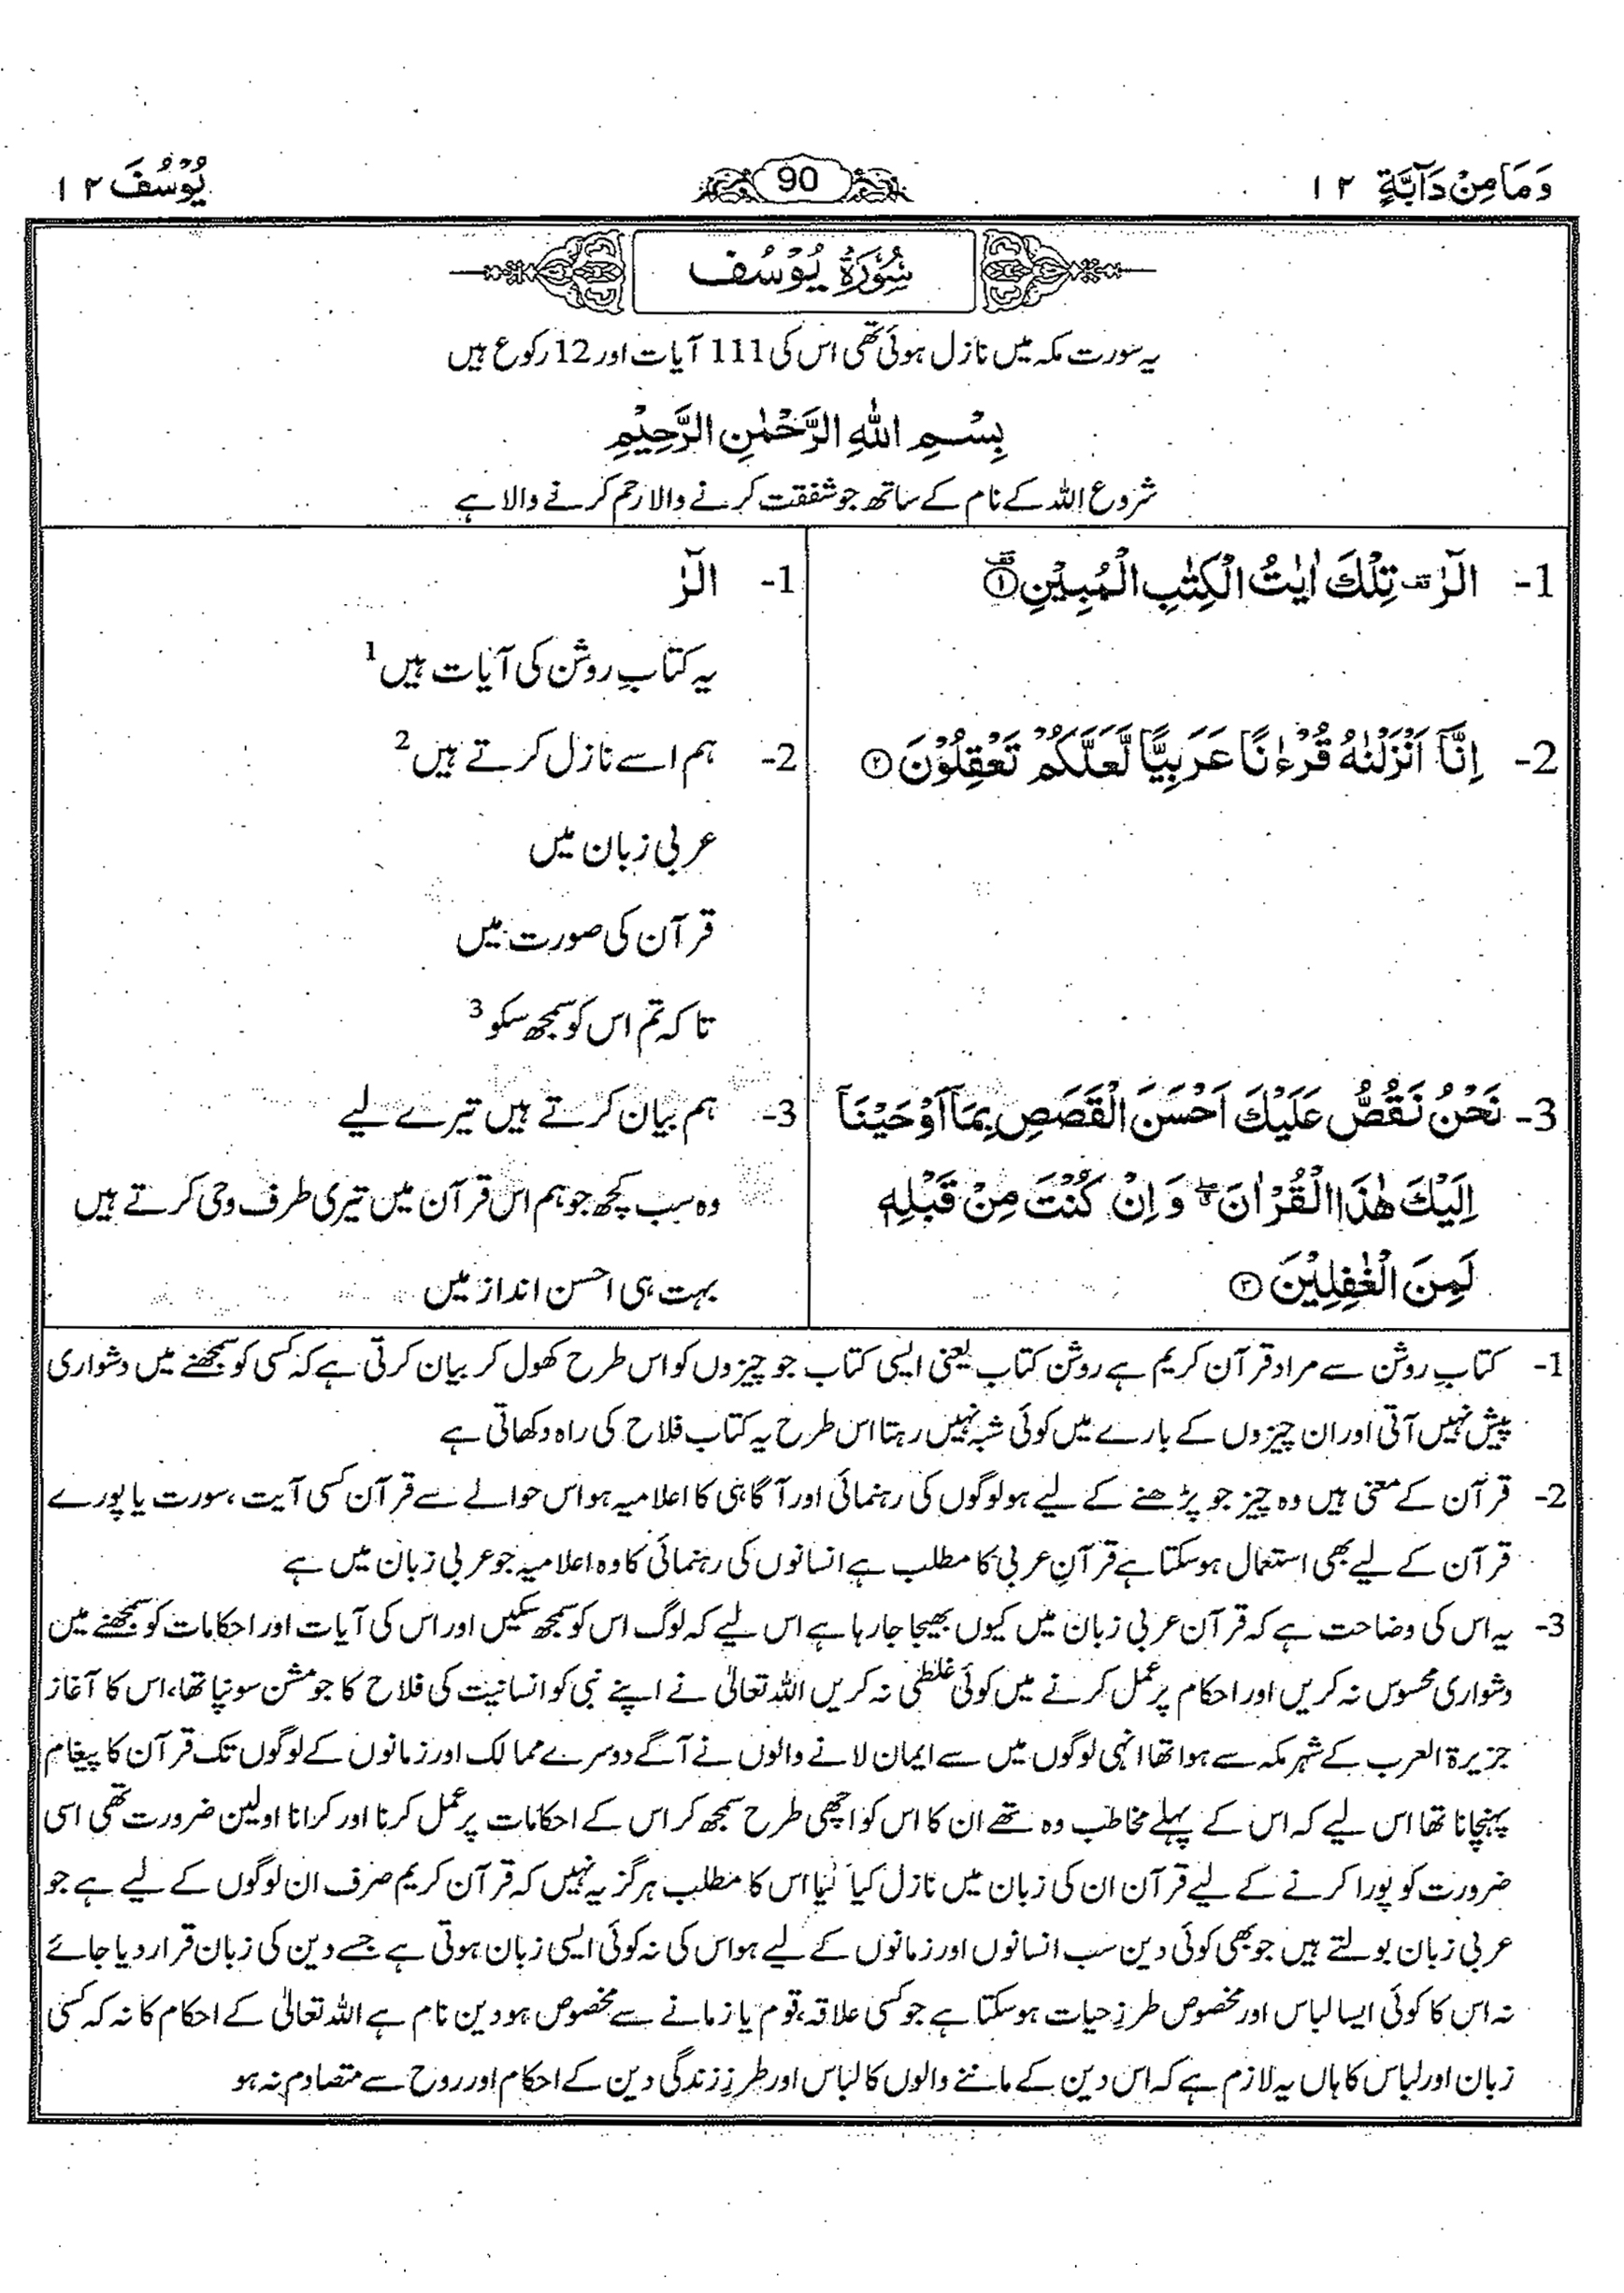 وَمَا مِنْ دَآبَّةٍ ١٢
90
يُوْسُفَ ١٢
سُوْرَةُ يُوْسُف
یہ سورت مکہ میں نازل ہوئی تھی اس کی 111 آیات اور 12 رکوع ہیں
بِسْـمِ اللّٰهِ الرَّحْمٰنِ الرَّحِيْمِ
شروع اللہ کے نام کے ساتھ جو شفقت کرنے والا رحم کرنے والا ہے
1- الٓرٰ ۫ تِلْكَ اٰيٰتُ الْكِتٰبِ الْمُبِيْنِ ۟ۙ ①
2- اِنَّاۤ اَنْزَلْنٰهُ قُرْءٰنًا عَرَبِيًّا لَّعَلَّكُمْ تَعْقِلُوْنَ ②
3- نَحْنُ نَقُصُّ عَلَيْكَ اَحْسَنَ الْقَصَصِ بِمَاۤ اَوْحَيْنَاۤ
اِلَيْكَ هٰذَا الْقُرْاٰنَ ۖ وَ اِنْ كُنْتَ مِنْ قَبْلِهٖ
لَمِنَ الْغٰفِلِيْنَ ③
1- الٓرٰ
یہ کتابِ روشن کی آیات ہیں 1
2- ہم اسے نازل کرتے ہیں 2
عربی زبان میں
قرآن کی صورت میں
تاکہ تم اس کو سمجھ سکو 3
3- ہم بیان کرتے ہیں تیرے لیے
وہ سب کچھ جو ہم اس قرآن میں تیری طرف وحی کرتے ہیں
بہت ہی احسن انداز میں
1- کتابِ روشن سے مراد قرآن کریم ہے روشن کتاب یعنی ایسی کتاب جو چیزوں کو اس طرح کھول کر بیان کرتی ہے کہ کسی کو سمجھنے میں دشواری
پیش نہیں آتی اور ان چیزوں کے بارے میں کوئی شبہ نہیں رہتا اس طرح یہ کتاب فلاح کی راہ دکھاتی ہے
2- قرآن کے معنی ہیں وہ چیز جو پڑھنے کے لیے ہو لوگوں کی رہنمائی اور آگاہی کا اعلامیہ ہو اس حوالے سے قرآن کسی آیت، سورت یا پورے
قرآن کے لیے بھی استعمال ہو سکتا ہے قرآنِ عربی کا مطلب ہے انسانوں کی رہنمائی کا وہ اعلامیہ جو عربی زبان میں ہے
3- یہ اس کی وضاحت ہے کہ قرآن عربی زبان میں کیوں بھیجا جا رہا ہے اس لیے کہ لوگ اس کو سمجھ سکیں اور اس کی آیات اور احکامات کو سمجھنے میں
دشواری محسوس نہ کریں اور احکام پر عمل کرنے میں کوئی غلطی نہ کریں اللہ تعالیٰ نے اپنے نبی کو انسانیت کی فلاح کا جو مشن سونپا تھا، اس کا آغاز
جزیرۃ العرب کے شہر مکہ سے ہوا تھا انہی لوگوں میں سے ایمان لانے والوں نے آگے دوسرے ممالک اور زمانوں کے لوگوں تک قرآن کا پیغام
پہنچانا تھا اس لیے کہ اس کے پہلے مخاطب وہ تھے ان کا اس کو اچھی طرح سمجھ کر اس کے احکامات پر عمل کرنا اور کرانا اولین ضرورت تھی اسی
ضرورت کو پورا کرنے کے لیے قرآن ان کی زبان میں نازل کیا گیا اس کا مطلب ہرگز یہ نہیں کہ قرآن کریم صرف ان لوگوں کے لیے ہے جو
عربی زبان بولتے ہیں جو بھی کوئی دین سب انسانوں اور زمانوں کے لیے ہو اس کی نہ کوئی ایسی زبان ہوتی ہے جسے دین کی زبان قرار دیا جائے
نہ اس کا کوئی ایسا لباس اور مخصوص طرزِ حیات ہو سکتا ہے جو کسی علاقہ، قوم یا زمانے سے مخصوص ہو دین نام ہے اللہ تعالیٰ کے احکام کا نہ کہ کسی
زبان اور لباس کا ہاں یہ لازم ہے کہ اس دین کے ماننے والوں کا لباس اور طرزِ زندگی دین کے احکام اور روح سے متصادم نہ ہو